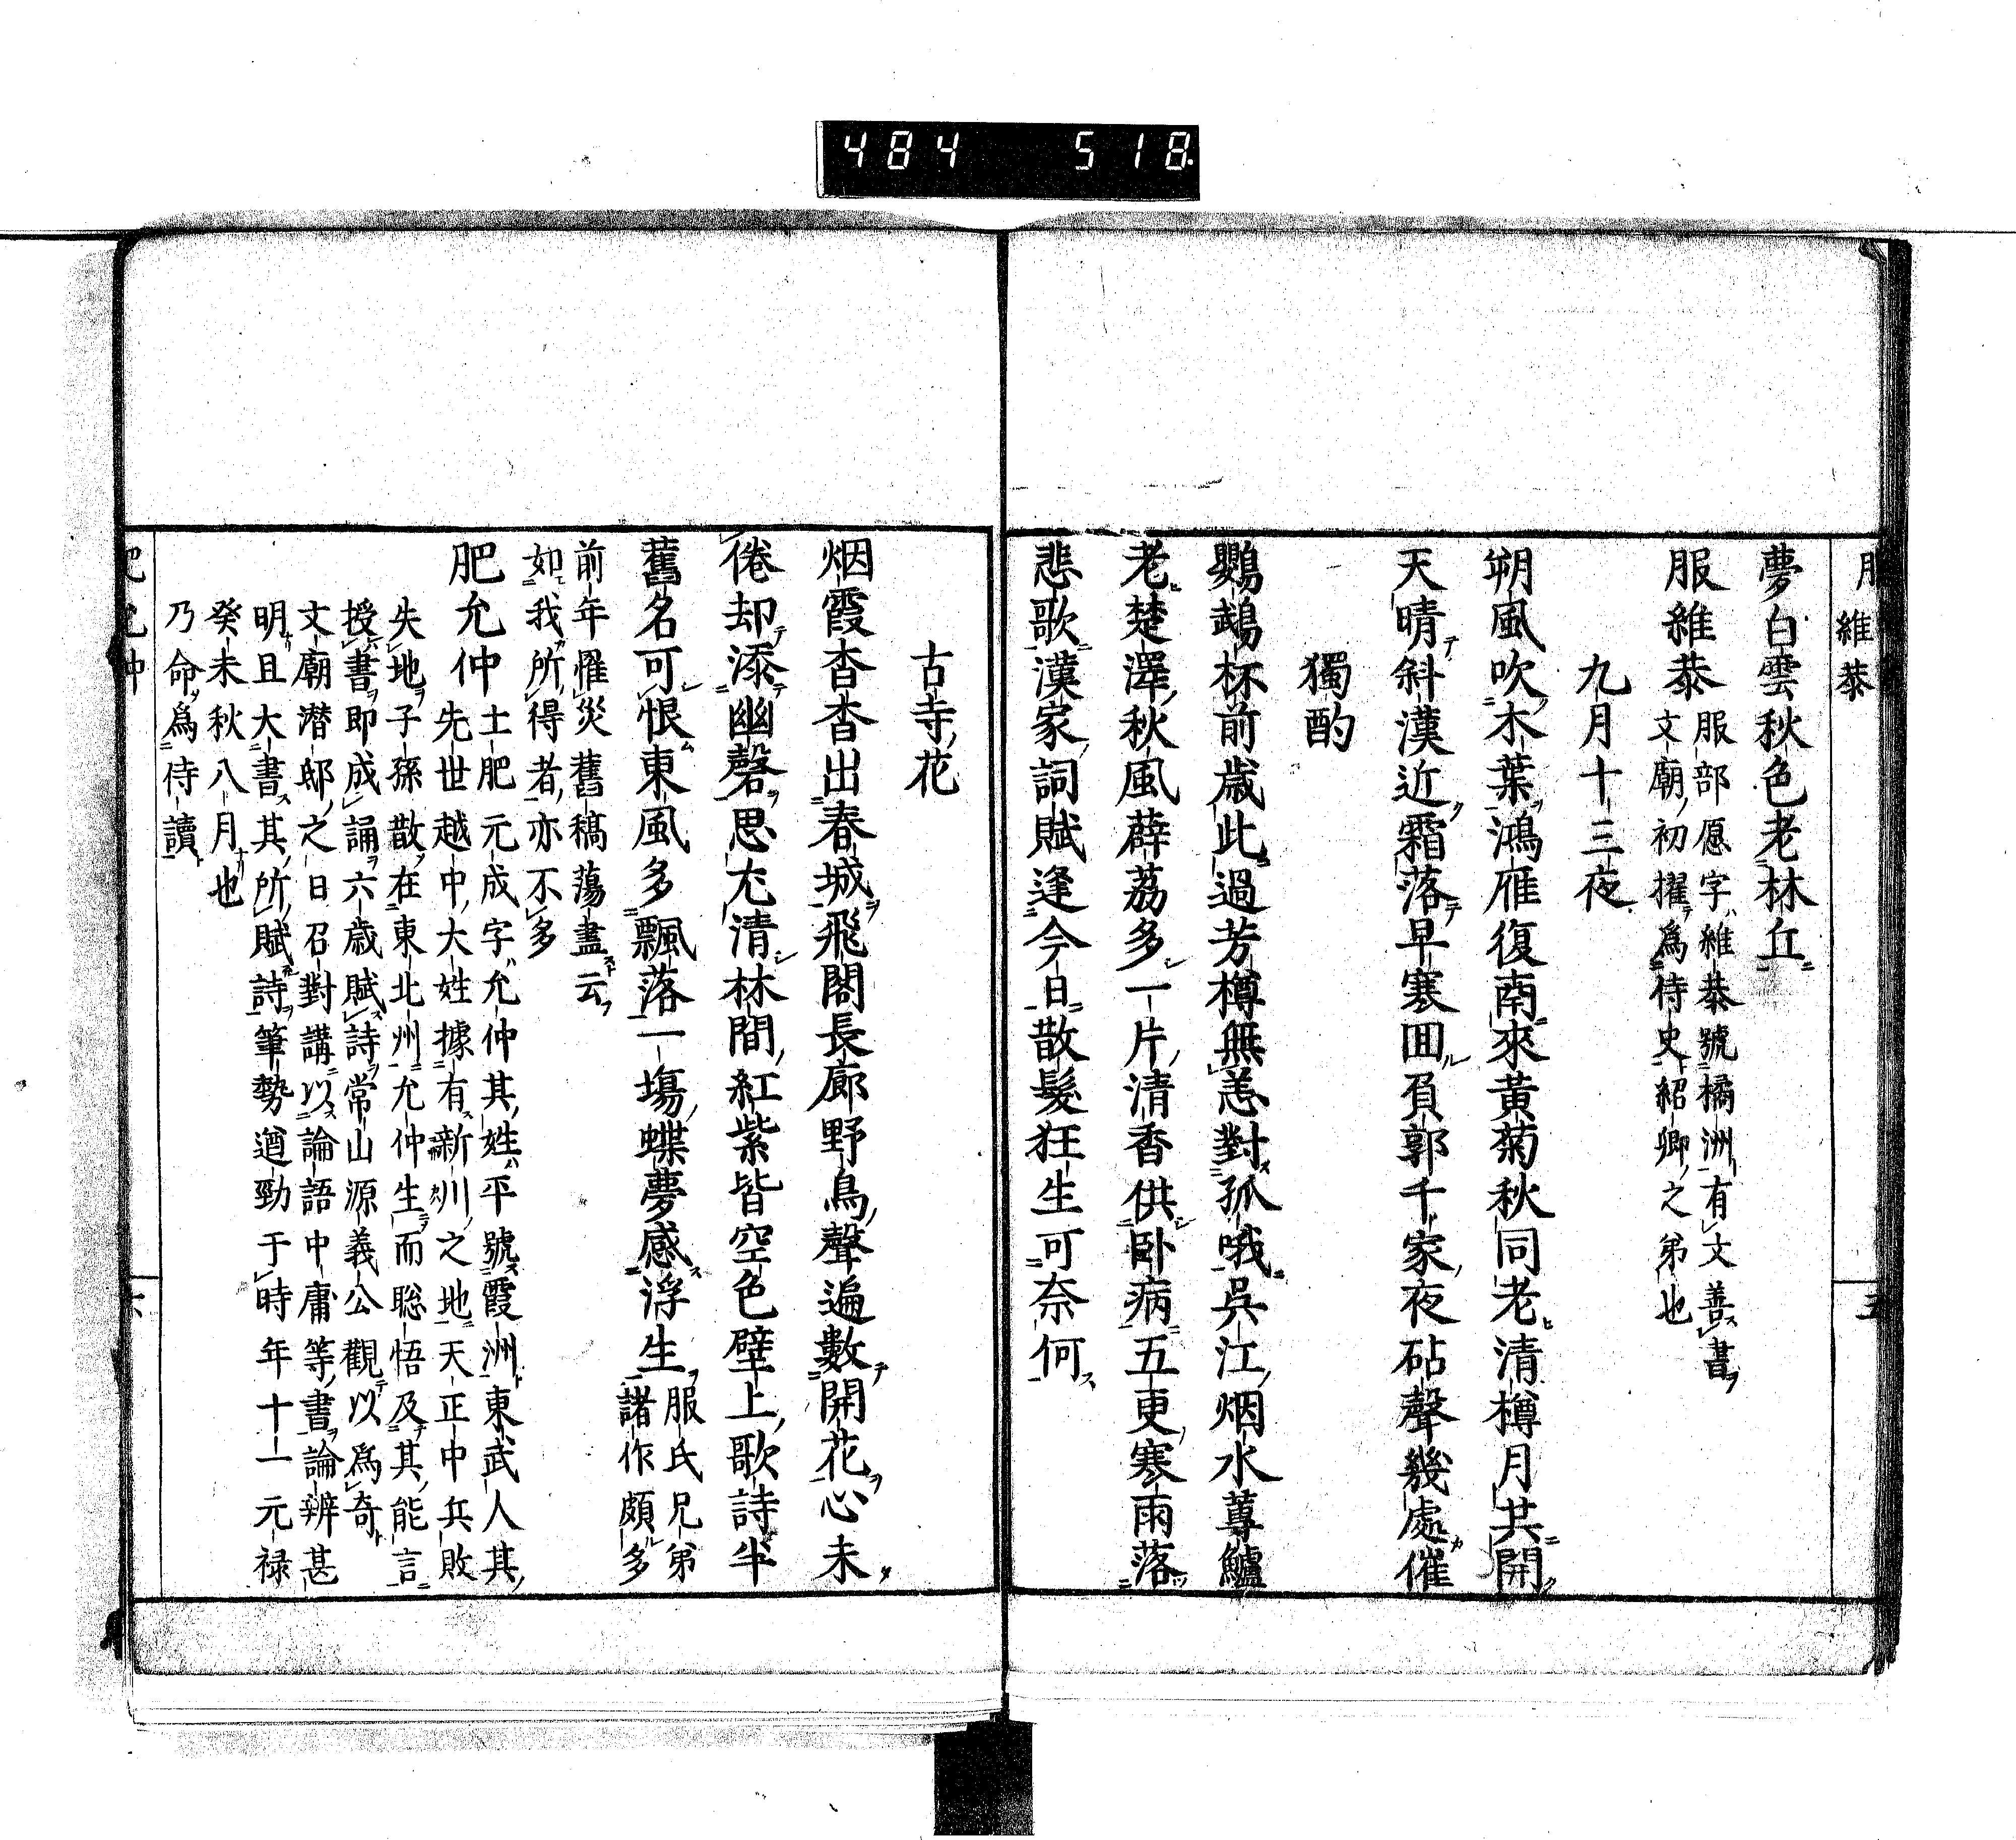 484 518
維恭
夢白雲秋色老林丘
服維恭
服部愿字維恭號橘洲有文善書
文廟初擢爲侍史紹卿之弟也
九月十三夜
朔風吹木葉鴻雁復南來黃菊秋同老清樽月共開
天晴斜漢近霜落早寒囬負郭千家夜砧聲幾處催
獨酌
鸚鵡杯前歲此過芳樽無恙對孤哦吳江烟水蓴鱸
老楚澤秋風薜荔多一片清香供卧病五更寒雨落
悲歌漢家詞賦逢今日散髮狂生可奈何
古寺花
烟霞杳杳出春城飛閣長廊野鳥聲遍數開花心未
倦却添幽磬思尤清林間紅紫皆空色壁上歌詩半
舊名可恨東風多飄落一塲蝶夢感浮生
服氏兄弟
諸作頗多
前年罹災舊稿蕩盡云
如我所得者亦不多
肥允仲
士肥元成字允仲其姓平號霞洲東武人其
先世越中大姓據有新川之地天正中兵敗
失地子孫散在東北州允仲生而聡悟及其能言
授書即成誦六歲賦詩常山源義公觀以爲奇
文廟潜邸之日召對講以論語中庸等書論辨甚
明且大書其所賦詩筆勢遒勁于時年十一元禄
癸未秋八月也
乃命爲侍讀